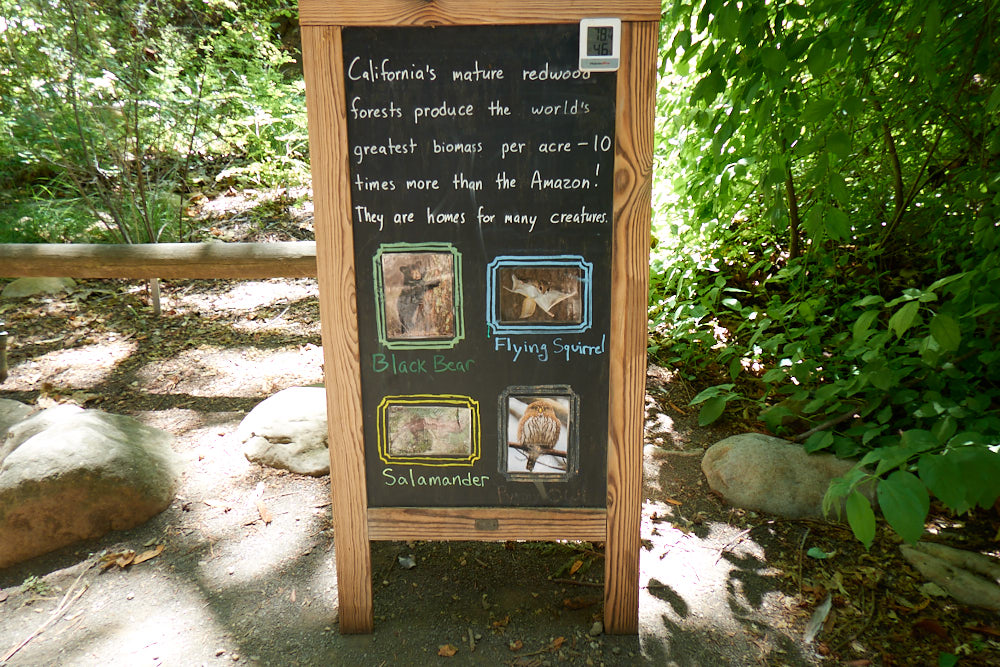 California's mature redwood
forests produce the world's
greatest biomass per acre – 10
times more than the Amazon!
They are homes for many creatures.
Black Bear
Flying Squirrel
Salamander
Pygmy Owl